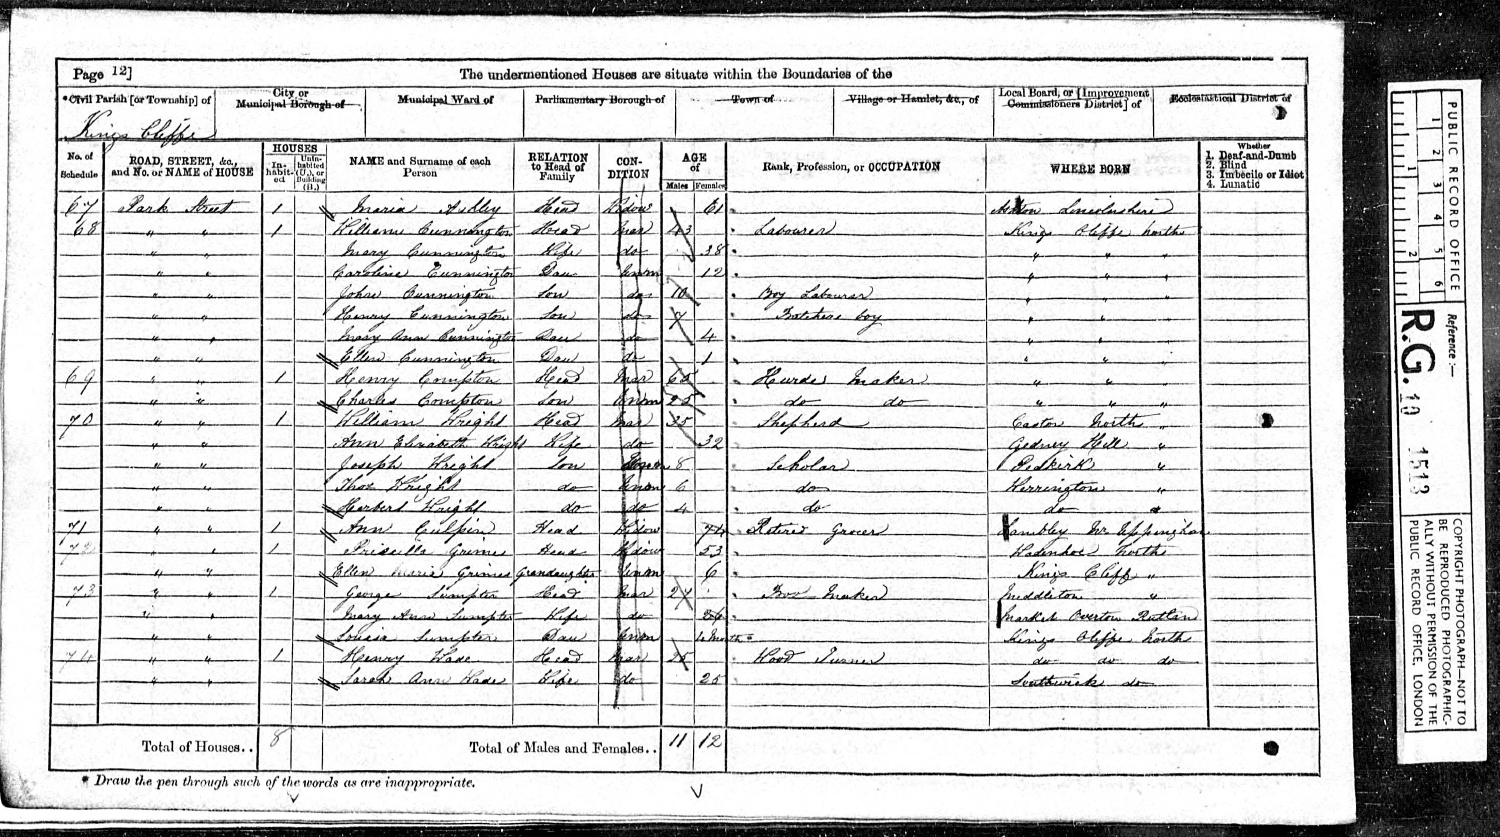 Page 12]
The undermentioned Houses are situate within the Boundaries of the
*Civil Parish [or Township] of
City or Municipal Borough of
Municipal Ward of
Parliamentary Borough of
Town of
Village or Hamlet, &c., of
Local Board, or [Improvement Commissioners District] of
Ecclesiastical District of
Kings Cliffe
No. of Schedule
ROAD, STREET, &c., and No. or NAME of HOUSE
HOUSES
In-habit-ed
Unin-habited (U.), or Building (B.)
NAME and Surname of each Person
RELATION to Head of Family
CON-DITION
AGE of
Males
Females
Rank, Profession, or OCCUPATION
WHERE BORN
Whether
1. Deaf-and-Dumb
2. Blind
3. Imbecile or Idiot
4. Lunatic
67 Park Street 1 Maria Ashley Head Widow 61 Lincolnshire
68 " " 1 William Cunnington Head Mar 43 Labourer Kings Cliffe North
" " Mary Cunnington Wife do 38 " " "
" " Caroline Cunnington Dau Unm 12 " " "
" " John Cunnington Son do 10 Boy Labourer " " "
" " Henry Cunnington Son do 7 boy " " "
" " Mary Ann Cunnington Dau do 4 " " "
" " Ellen Cunnington Dau do 1 " " "
69 " " 1 Henry Compton Head Mar Maker " " "
" " Charles Compton Son Unm 25 do do " " "
70 " " 1 William Wright Head Mar 35 Shepherd Castor North "
" " Ann Elizabeth Wright Wife do 32 Gedney Hill "
" " Joseph Wright Son Unm 8 Scholar "
" " Thos Wright do Unm 6 do "
" " Herbert Wright do do 4 do do "
71 " " 1 Ann Culpin Head Widow 74 Retired Grocer Nr Uppingham
72 " " 1 Priscilla Grimes Head Widow 53 North
" " Ellen Maria Grimes Grandaughter Unm 6 Kings Cliffe "
73 " " 1 George Sumpter Head Mar 27 Maker Middleton "
" " Mary Ann Sumpter Wife do 26 Market Overton Rutlan
" " Sumpter Dau Unm Kings Cliffe North
74 " " 1 Henry Wade Head Mar 25 Wood Turner do do do
" " Sarah Ann Wade Wife do 25 Southwick do
Total of Houses.. 8
Total of Males and Females.. 11 12
* Draw the pen through such of the words as are inappropriate.
PUBLIC RECORD OFFICE
1 2 3 4 5 6
1 2
Reference :—
R.G. 10 1513
COPYRIGHT PHOTOGRAPH—NOT TO
BE REPRODUCED PHOTOGRAPHIC-
ALLY WITHOUT PERMISSION OF THE
PUBLIC RECORD OFFICE, LONDON